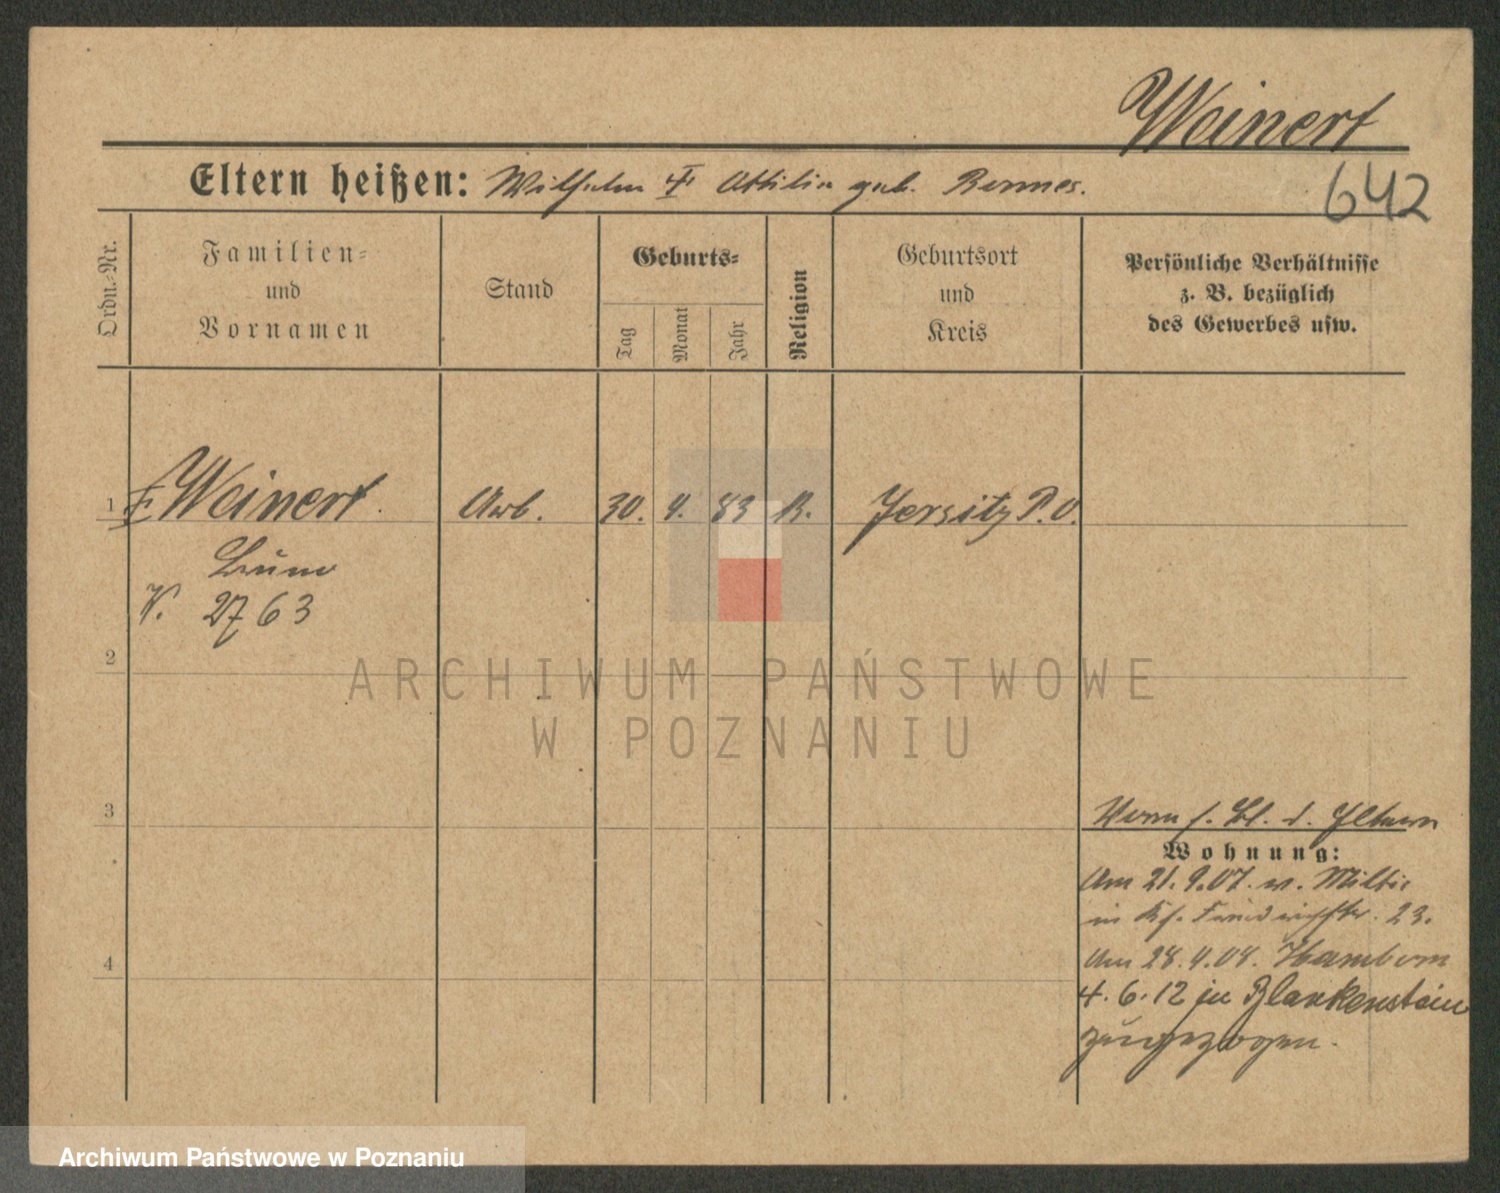 Weinert
Eltern heißen: Wilhelm Ottilie geb.
642
Ordn.-Nr.
Familien-
und
Vornamen
Stand
Geburts-
Tag
Monat
Jahr
Religion
Geburtsort
und
Kreis
Persönliche Verhältnisse
z. B. bezüglich
des Gewerbes usw.
1 Weinert Arb. 30. 4. 83 Jersitz P.O.
V. 2763
2
ARCHIWUM PAŃSTWOWE
W POZNANIU
3
s. Bl. d. Eltern
Wohnung:
Am 21.9.07.
in 23.
4
Am 28.4.08. Hamborn
4.6.12 in Blankenstein
zugezogen.
Archiwum Państwowe w Poznaniu